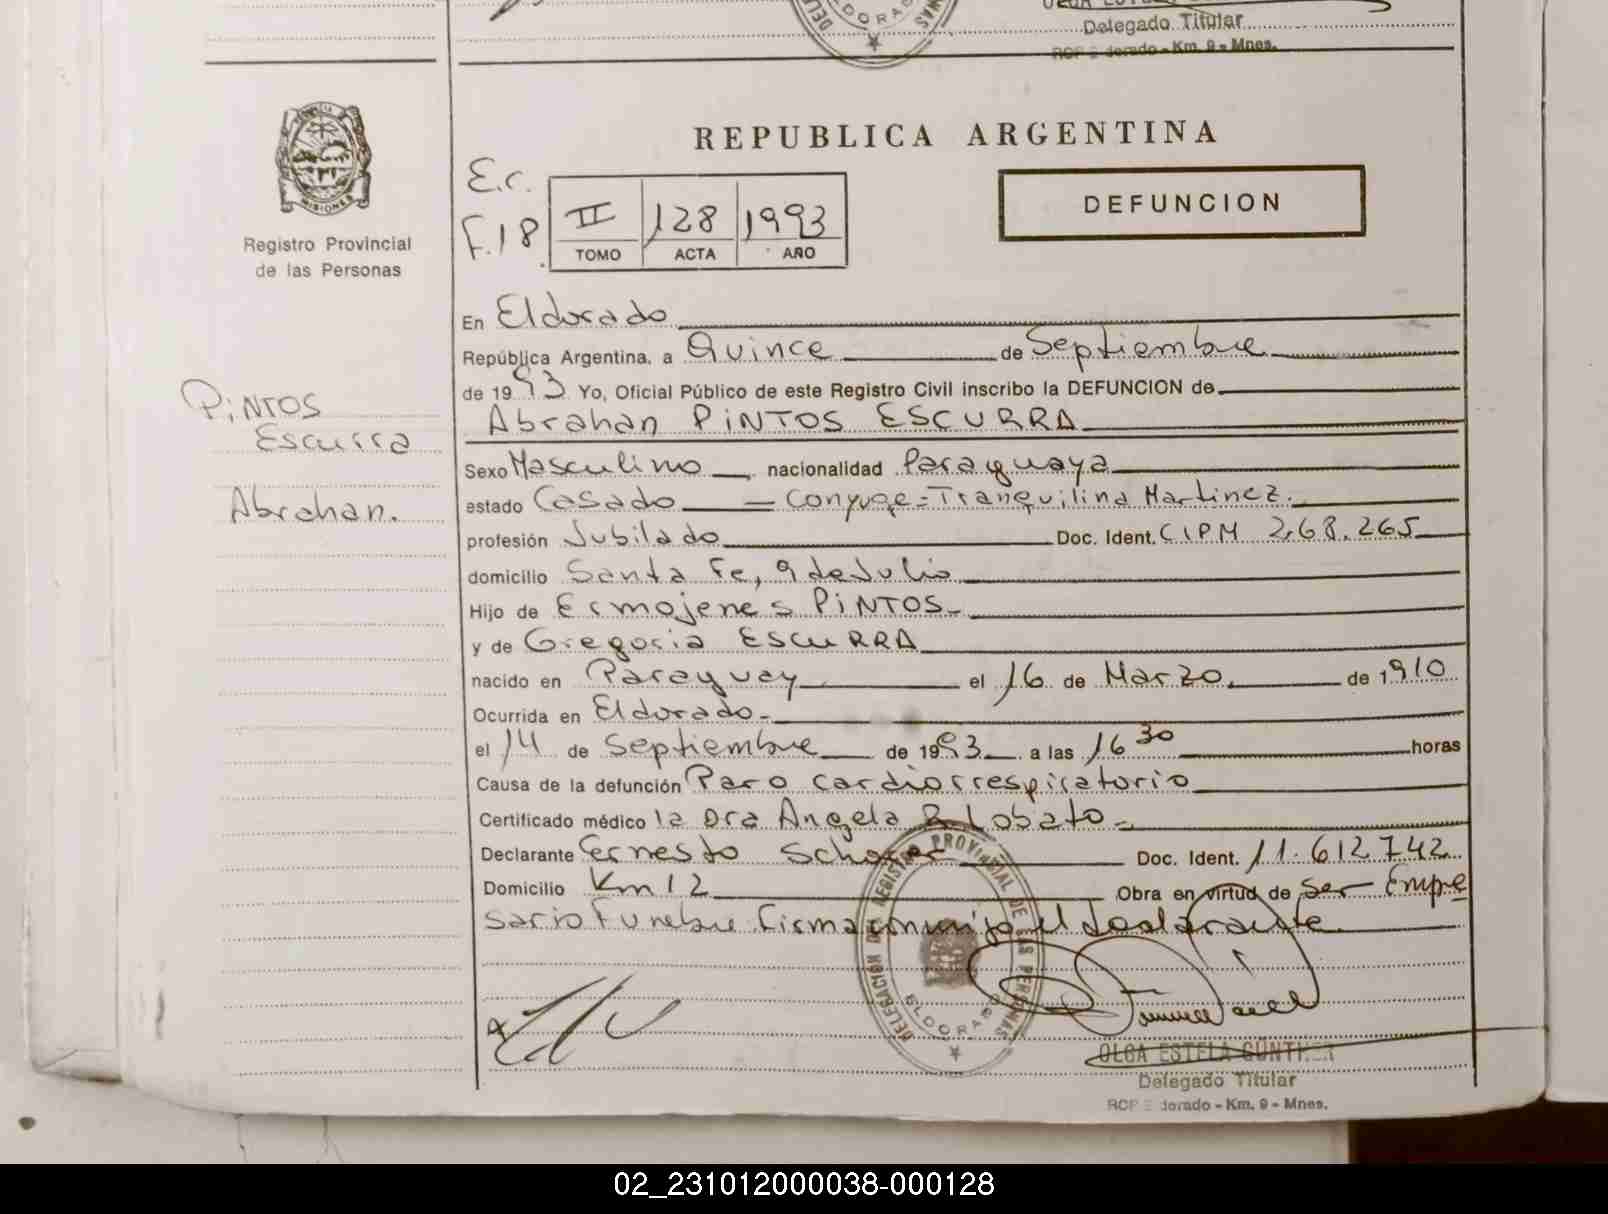 DORA
Delegado Titular
Km. 9 - Mnes.
MISIONES
Registro Provincial
de las Personas
PiNTOS
Escurra
Abrahan.
REPUBLICA ARGENTINA
E.c.
F.18
II 128 1993
TOMO ACTA AÑO
DEFUNCION
En Eldorado
República Argentina, a Quince de Septiembre
de 1993 Yo, Oficial Público de este Registro Civil inscribo la DEFUNCION de
Abrahan PiNTOS ESCURRA
Sexo Masculino nacionalidad Paraguaya
estado Casado — Conyuge = Tranquilina Martinez.
profesión Jubilado Doc. Ident. CIPM 268.265
domicilio Santa Fe, 9 de Julio
Hijo de Ermojenes PiNTOS-
y de Gregoria ESCURRA
nacido en Paraguay el 16 de Marzo. de 1910
Ocurrida en Eldorado-
el 14 de Septiembre de 1993 a las 16 30 horas
Causa de la defunción Paro cardiorrespiratorio
Certificado médico la Dra Angela R Lobato-
Declarante Ernesto Schafer Doc. Ident. 11.612742
Domicilio Km 12 Obra en virtud de Ser Empre
sario Funebre firma conmigo el declarante
DELEGACION DEL REGISTRO PROVINCIAL DE LAS PERSONAS
ELDORADO
OLGA ESTELA GÜNTHER
Delegado Titular
RCP Eldorado - Km. 9 - Mnes.
02_231012000038-000128